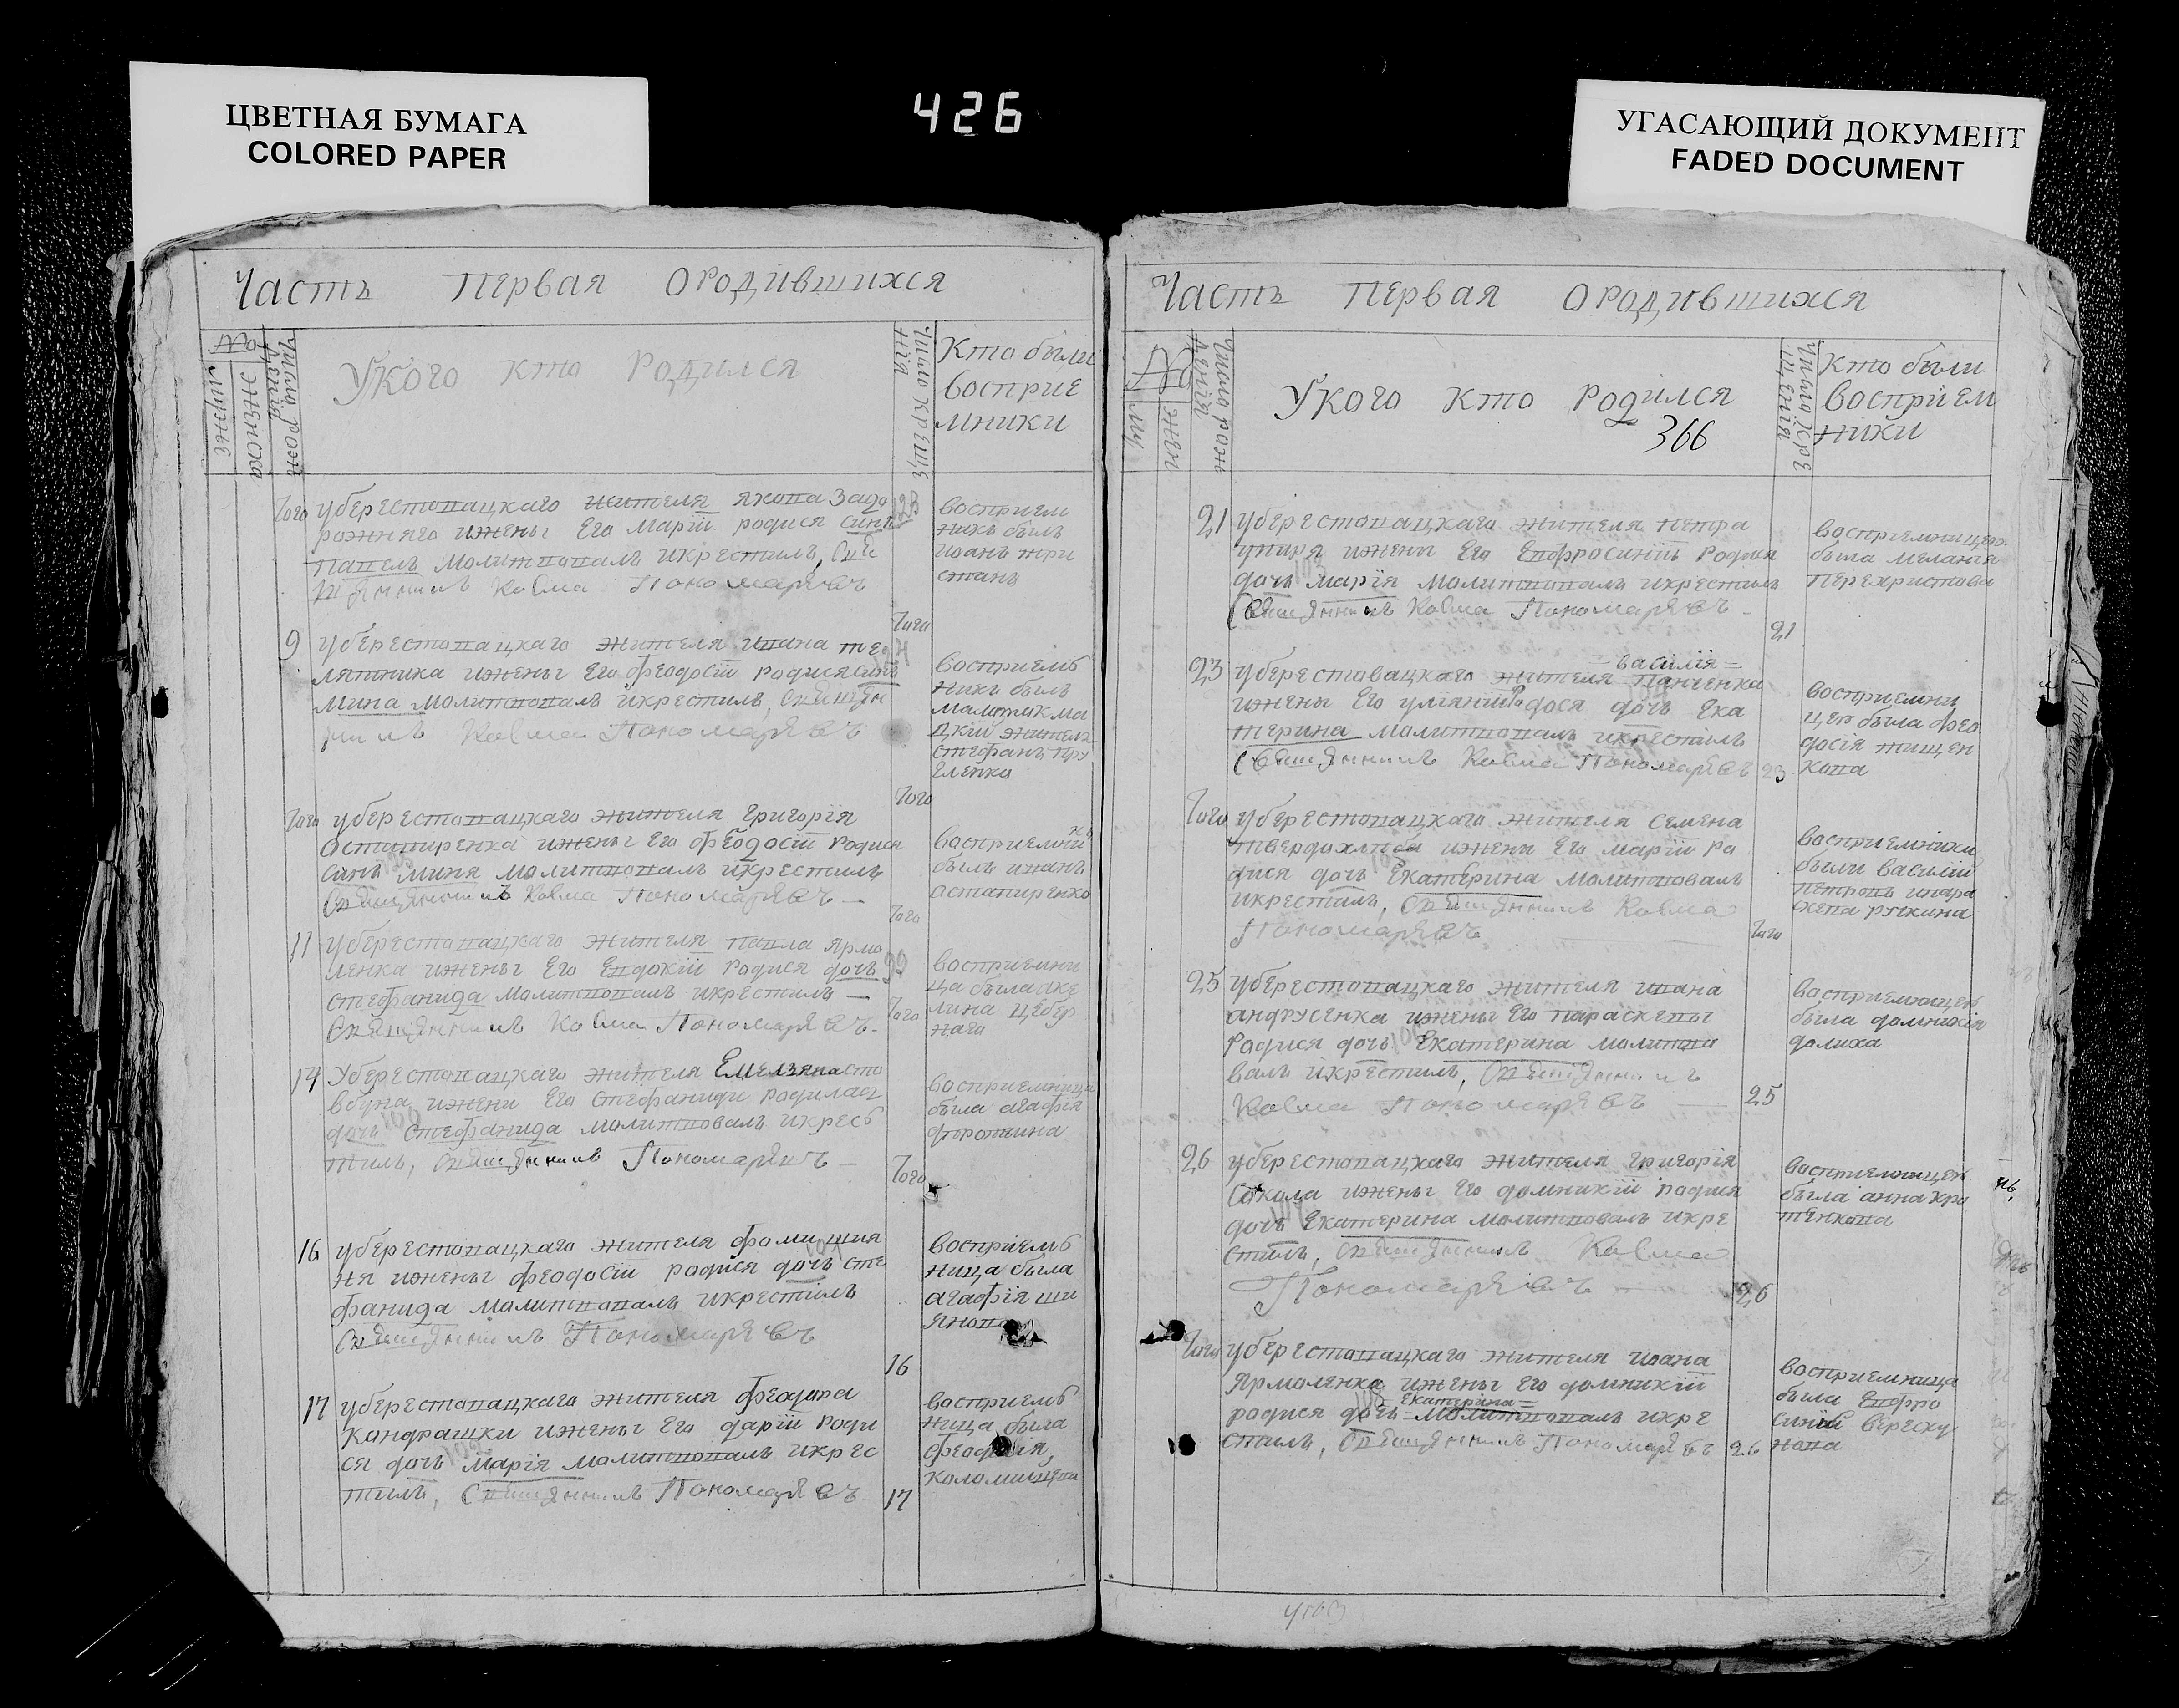 ЦВЕТНАЯ БУМАГА
COLORED PAPER
426
УГАСАЮЩИЙ ДОКУМЕНТ
FADED DOCUMENT
Часть первая ородившихся
№
мужес
женск
Число рожденія
Укого кто родился
Число крещенія
Кто были
восприе
мники
Того
уберестовацкаго жителя якова Задо
рожняго ижены Его Маріи родися синъ
павелъ Молитвовалъ икрестилъ, Свя
щенникъ Косма Пономаревъ
восприем
никъ былъ
иоанъ
Того
9 уберестовацкаго жителя ивана те
лятника ижены Его феодосіи родися синъ
мина молитвовалъ икрестилъ, Священ
никъ Косма Пономаревъ
восприемъ
никъ былъ
жителъ
стефанъ
Того
Того уберестовацкаго жителя григорія
остапиренка ижены Его феодосіи родися
синъ миня молитвовалъ икрестилъ
Священникъ Косма Пономаревъ
восприемникъ
былъ иванъ
остапиренко
Того
11 уберестовацкаго жителя павла ярмо
ленка ижены Его Евдокіи родися дочь
стефанида молитвовалъ икрестилъ
Священникъ Косма Пономаревъ
99
восприемни
ца была аке
лина Цебер
наго
Того
14 Уберестовацкаго жителя Емелзяна сто
вбуна ижени Его стефаниди родилась
дочь Стефанида молитвовалъ икресъ
тилъ, Священникъ Пономаревъ
100
восприемница
была агафія
Того
16 уберестовацкаго жителя фоми шия
ня ижены феодосіи родися дочь сте
фанида молитвовалъ икрестилъ
Священникъ Пономаревъ
101
восприемъ
ница была
агафія ши
янова
16
17 уберестовацкаго жителя феодора
кандрашки ижены Его даріи роди
ся дочь марія молитвовалъ икрес
тилъ, Священникъ Пономаревъ
102
17
восприемъ
ница была
феодосія,
коломийцева
Часть первая ородившихся
№
му
жен
Число рожденія
Укого кто родился
366
Число крещенія
Кто были
восприем
ники
21 уберестовацкаго жителя петра
ижены Его Евфросиніи родися
дочь марія молитвовалъ икрестилъ
Священникъ Косма Пономаревъ
103
21
восприемницею
была меланія
перехристова
23 уберестовацкаго жителя =василія= панченка
ижены Его уліяніи родося дочь Ека
терина молитвовалъ икрестилъ
Священникъ Косма Пономаревъ
23
восприемни
цею была фео
досія тищен
кова
Того уберестовацкаго жителя семена
твердохлиба ижени Его маріи ро
дися дочь Екатерина молитвовалъ
икрестилъ, Священникъ Косма
Пономаревъ
Того
восприемники
были василій
петровъ
25 уберестовацкаго жителя ивана
андрусенка ижены Его параскевы
родися дочь Екатерина молитво
валъ икрестилъ, Священникъ
Косма Пономаревъ
106
25
восприемницею
была домникія
долиха
26 уберестовацкаго жителя григорія
Сокола ижены Его домникіи родися
дочь Екатерина молитвовалъ икре
стилъ, Священникъ Косма
Пономаревъ
107
26
восприемницею
была анна кра
тенкова
Того уберестовацкаго жителя иоана
Ярмоленка ижены Его домникіи
родися дочь =Екатерина= молитвовалъ икре
стилъ, Священникъ Пономаревъ
108
26
восприемница
была Евфро
синій вереску
нова